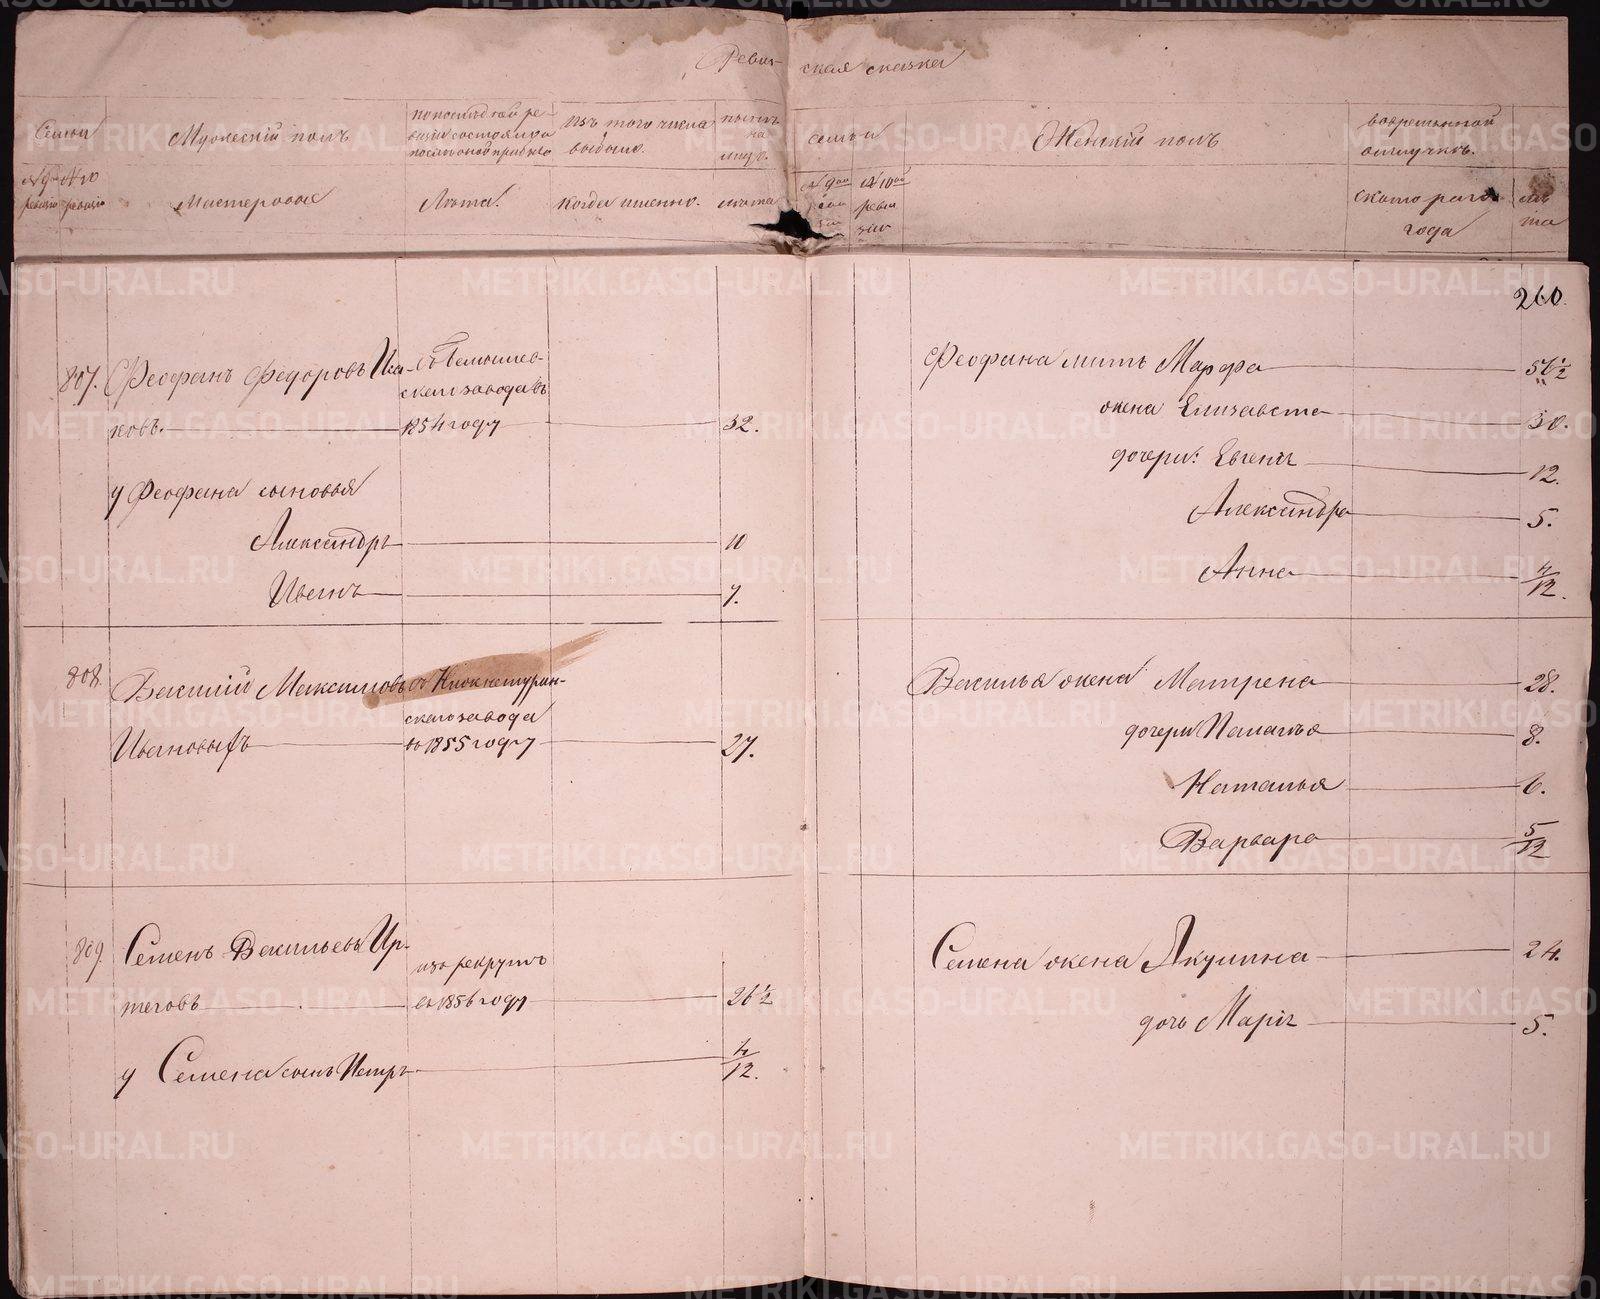 Ревизская сказка
Семьи
Мужескій полъ
по последней ревизіи состояло и после оной прибыло
изъ того числа выбыло.
ныне на лицо.
семьи
Женскій полъ
во временной отлучке.
№ 9ой ревизіи
№ 10 ревизіи
Мастеровые
Лета.
когда именно.
лета
№ 9ой ревизіи
№ 10ой ревизіи
с котораго года
лета
260.
807. Феофанъ Федоровъ Иса-
съ
скаго завода въ
ковъ.
1854 году
32.
у Феофана сыновья
Александръ
10
Иванъ
7.
Феофана мать Марфа
56½
жена Елизавета
30.
дочери: Евгенія
12.
Александра
5.
Анна
4/12.
808. Василій Максимовъ
съ Нижнетурин-
скаго завода
Ивановыхъ
въ 1855 году
27.
Василья жена Матрена
28.
дочери Наталья
8.
Наталья
6.
Варвара
5/12
809. Семенъ Васильевъ Ир-
изъ рекрутъ
теговъ
въ 1856 году
26½
у Семена сынъ Петръ
4/12.
Семена жена Акулина
24.
дочь Марія
5.
METRIKI.GASO-URAL.RU